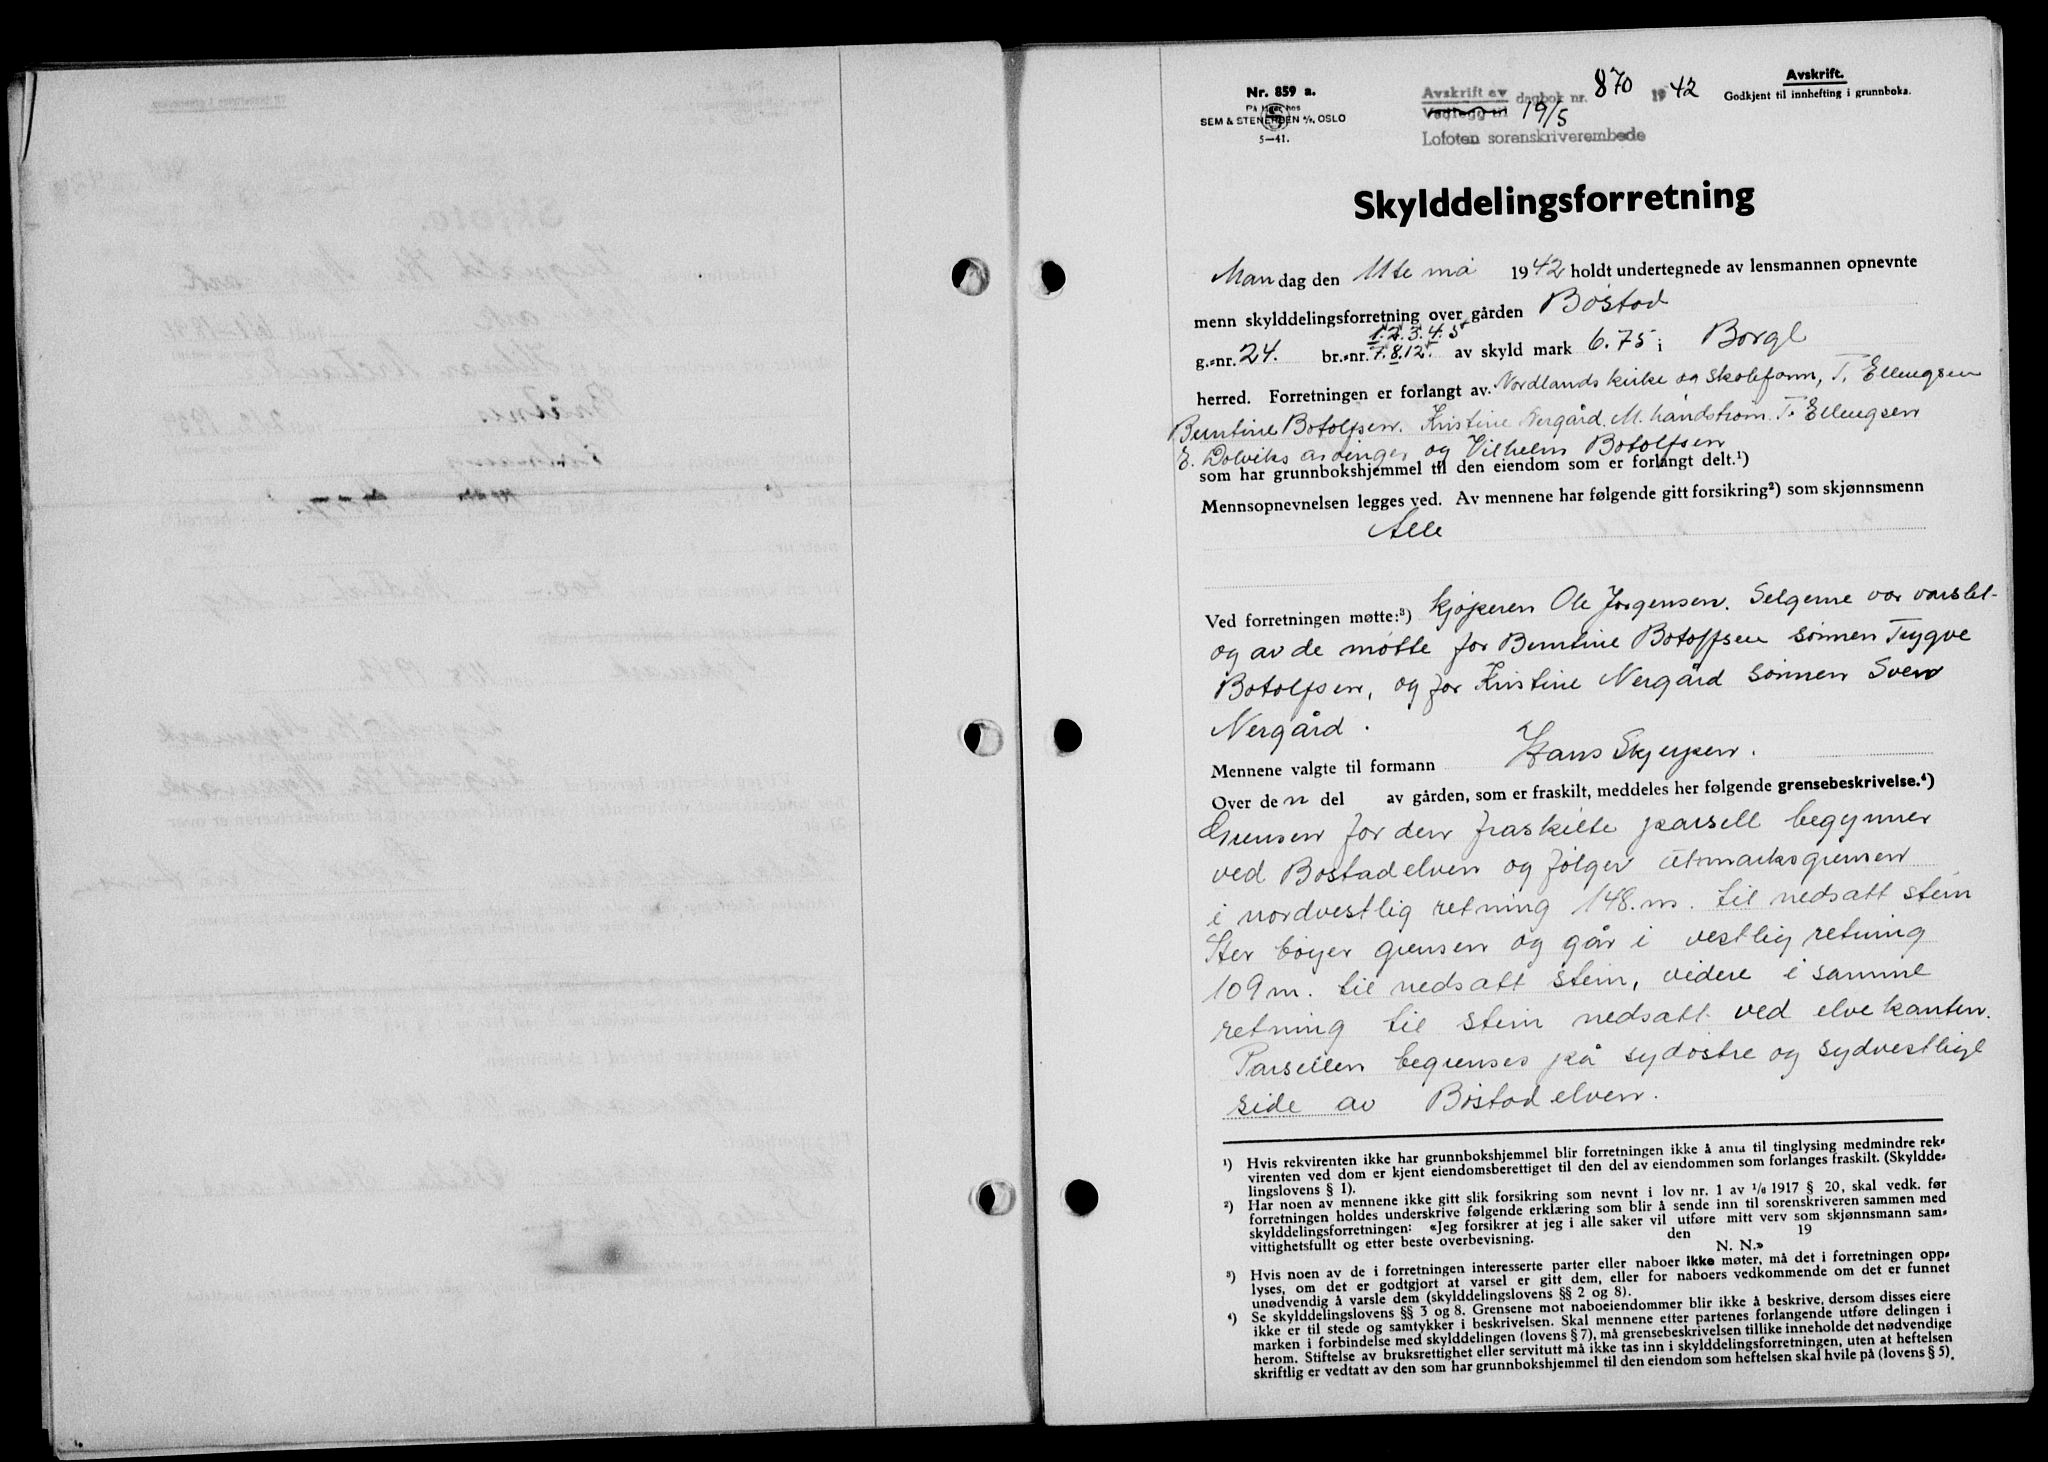 Nr. 859 a.
På lager hos
SEM & STENERSEN A/S, OSLO
5—41.
Avskrift av
Vedlegg til
dagbok nr. 870 1942
19/5
Lofoten sorenskriverembede
Avskrift.
Godkjent til innhefting i grunnboka.
Skylddelingsforretning
Mandag den 11te mai 1942 holdt undertegnede av lensmannen opnevnte
menn skylddelingsforretning over gården Bøstad
1. 2. 3. 4. 5
g.-nr. 24. br.-nr. 7. 8. 12. av skyld mark 6.75 i Borge
herred. Forretningen er forlangt av Nordlands kirke og skolefonn, T. Ellingsen
Berntine Botolfsen. Kristine Nergård. M. Landstrøm. T. Ellingsen
E. Dolviks arvinger og Vilhelm Botolfsen
som har grunnbokshjemmel til den eiendom som er forlangt delt.¹)
Mennsopnevnelsen legges ved. Av mennene har følgende gitt forsikring²) som skjønnsmenn
Alle
Ved forretningen møtte:³) kjøperen Ole Jørgensen. Selgerne var varslet-
og av de møtte for Berntine Botolfsen sønnen Trygve
Botolfsen, og for Kristine Nergård sønnen Sven
Nergård.
Mennene valgte til formann Hans Skjerpen.
Over den del av gården, som er fraskilt, meddeles her følgende grensebeskrivelse.⁴)
Grensen for den fraskilte parsell begynner
ved Bøstadelven og følger utmarksgrensen
i nordvestlig retning 148. m. til nedsatt stein
Her bøyer grensen og går i vestlig retning
109 m. til nedsatt stein, videre i samme
retning til stein nedsatt ved elvekanten.
Parsellen begrenses på sydøstre og sydvestlige
side av Bøstadelven.
¹) Hvis rekvirenten ikke har grunnbokshjemmel blir forretningen ikke å anta til tinglysing medmindre rek-
virenten ved dom er kjent eiendomsberettiget til den del av eiendommen som forlanges fraskilt. (Skyldde-
lingslovens § 1).
²) Har noen av mennene ikke gitt slik forsikring som nevnt i lov nr. 1 av 1/6 1917 § 20, skal vedk. før
forretningen holdes underskrive følgende erklæring som blir å sende inn til sorenskriveren sammen med
skylddelingsforretningen: «Jeg forsikrer at jeg i alle saker vil utføre mitt verv som skjønnsmann sam-
vittighetsfullt og etter beste overbevisning. den 19
N. N.»
³) Hvis noen av de i forretningen interesserte parter eller naboer ikke møter, må det i forretningen opp-
lyses, om det er godtgjort at varsel er gitt dem, eller for naboers vedkommende om det er funnet
unødvendig å varsle dem (skylddelingslovens §§ 2 og 8).
⁴) Se skylddelingslovens §§ 3 og 8. Grensene mot naboeiendommer blir ikke å beskrive, dersom disses eiere
ikke er til stede og samtykker i beskrivelsen. Skal mennene etter partenes forlangende utføre delingen i
marken i forbindelse med skylddelingen (lovens § 7), må grensebeskrivelsen tillike inneholde det nødvendige
herom. Stiftelse av bruksrettighet eller servitutt må ikke tas inn i skylddelingsforretningen, uten at heftelsen
skriftlig er vedtatt av den som har grunnbokshjemmel til den eiendom som heftelsen skal hvile på (lovens § 5).